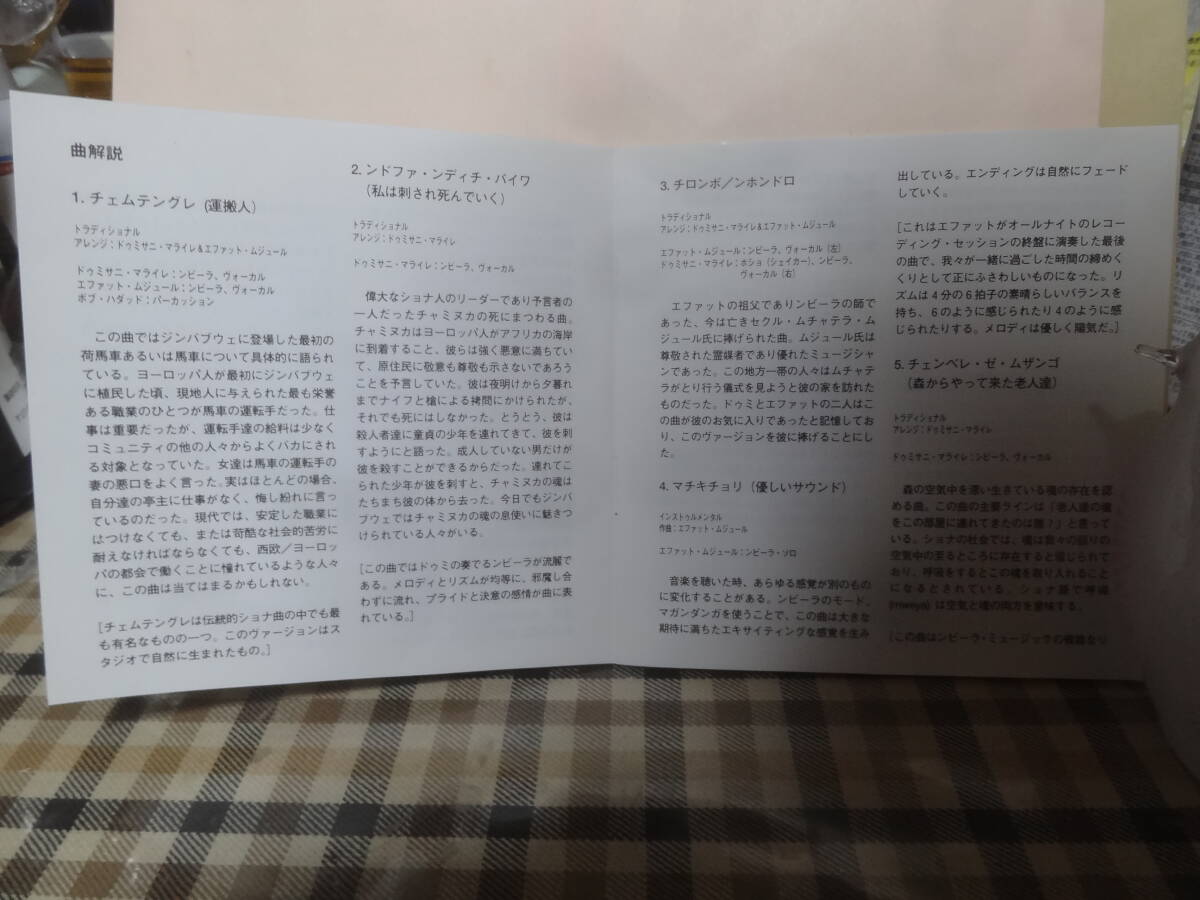 曲解説
1. チェムテングレ (運搬人)
トラディショナル
アレンジ：ドゥミサニ・マライレ&エファット・ムジュール
ドゥミサニ・マライレ：ンビーラ、ヴォーカル
エファット・ムジュール：ンビーラ、ヴォーカル
ボブ・ハダッド：パーカッション
この曲ではジンバブウェに登場した最初の
荷馬車あるいは馬車について具体的に語られ
ている。ヨーロッパ人が最初にジンバブウェ
に植民した頃、現地人に与えられた最も栄誉
ある職業のひとつが馬車の運転手だった。仕
事は重要だったが、運転手達の給料は少なく
コミュニティの他の人々からよくバカにされ
る対象となっていた。女達は馬車の運転手の
妻の悪口をよく言った。実はほとんどの場合、
自分達の亭主に仕事がなく、悔し紛れに言っ
ているのだった。現代では、安定した職業に
はつけなくても、または苛酷な社会的苦労に
耐えなければならなくても、西欧／ヨーロッ
パの都会で働くことに憧れているような人々
に、この曲は当てはまるかもしれない。
[チェムテングレは伝統的ショナ曲の中でも最
も有名なものの一つ。このヴァージョンはス
タジオで自然に生まれたもの。]
2. ンドファ・ンディチ・バイワ
(私は刺され死んでいく)
トラディショナル
アレンジ：ドゥミサニ・マライレ
ドゥミサニ・マライレ：ンビーラ、ヴォーカル
偉大なショナ人のリーダーであり予言者の
一人だったチャミヌカの死にまつわる曲。
チャミヌカはヨーロッパ人がアフリカの海岸
に到着すること、彼らは強く悪意に満ちてい
て、原住民に敬意も尊敬も示さないであろう
ことを予言していた。彼は夜明けから夕暮れ
までナイフと槍による拷問にかけられたが、
それでも死にはしなかった。とうとう、彼は
殺人者達に童貞の少年を連れてきて、彼を刺
すようにと語った。成人していない男だけが
彼を殺すことができるからだった。連れてこ
られた少年が彼を刺すと、チャミヌカの魂は
たちまち彼の体から去った。今日でもジンバ
ブウェではチャミヌカの魂の息使いに魅きつ
けられている人々がいる。
[この曲ではドゥミの奏でるンビーラが流麗で
ある。メロディとリズムが均等に、邪魔し合
わずに流れ、プライドと決意の感情が曲に表
れている。]
3. チロンボ／ンホンドロ
トラディショナル
アレンジ：ドゥミサニ・マライレ&エファット・ムジュール
エファット・ムジュール：ンビーラ、ヴォーカル (左)
ドゥミサニ・マライレ：ホショ (シェイカー)、ンビーラ、
ヴォーカル (右)
エファットの祖父でありンビーラの師で
あった、今は亡きセクル・ムチャテラ・ム
ジュール氏に捧げられた曲。ムジュール氏は
尊敬された霊媒者であり優れたミュージシャ
ンであった。この地方一帯の人々はムチャテ
ラがとり行う儀式を見ようと彼の家を訪れた
ものだった。ドゥミとエファットの二人はこ
の曲が彼のお気に入りであったと記憶してお
り、このヴァージョンを彼に捧げることにし
た。
4. マチキチョリ (優しいサウンド)
インストゥルメンタル
作曲：エファット・ムジュール
エファット・ムジュール：ンビーラ・ソロ
音楽を聴いた時、あらゆる感覚が別のもの
に変化することがある。ンビーラのモード、
マガンダンガを使うことで、この曲は大きな
期待に満ちたエキサイティングな感覚を生み
出している。エンディングは自然にフェード
していく。
[これはエファットがオールナイトのレコー
ディング・セッションの終盤に演奏した最後
の曲で、我々が一緒に過ごした時間の締めく
くりとして正にふさわしいものになった。リ
ズムは4分の6拍子の素晴らしいバランスを
持ち、6のように感じられたり4のように感
じられたりする。メロディは優しく陽気だ。]
5. チェンベレ・ゼ・ムザンゴ
(森からやって来た老人達)
トラディショナル
アレンジ：ドゥミサニ・マライレ
ドゥミサニ・マライレ：ンビーラ、ヴォーカル
森の空気中を漂い生きている魂の存在を認
める曲。この曲の主要ラインは「老人達の魂
をこの部屋に連れてきたのは誰？」と言って
いる。ショナの社会では、魂は我々の回りの
空気中の至るところに存在すると信じられて
おり、呼吸をするとこの魂を取り入れること
になるとされている。ショナ語で呼吸
(mweya) は空気と魂の両方を意味する。
[この曲はンビーラ・ミュージックの複雑なリ